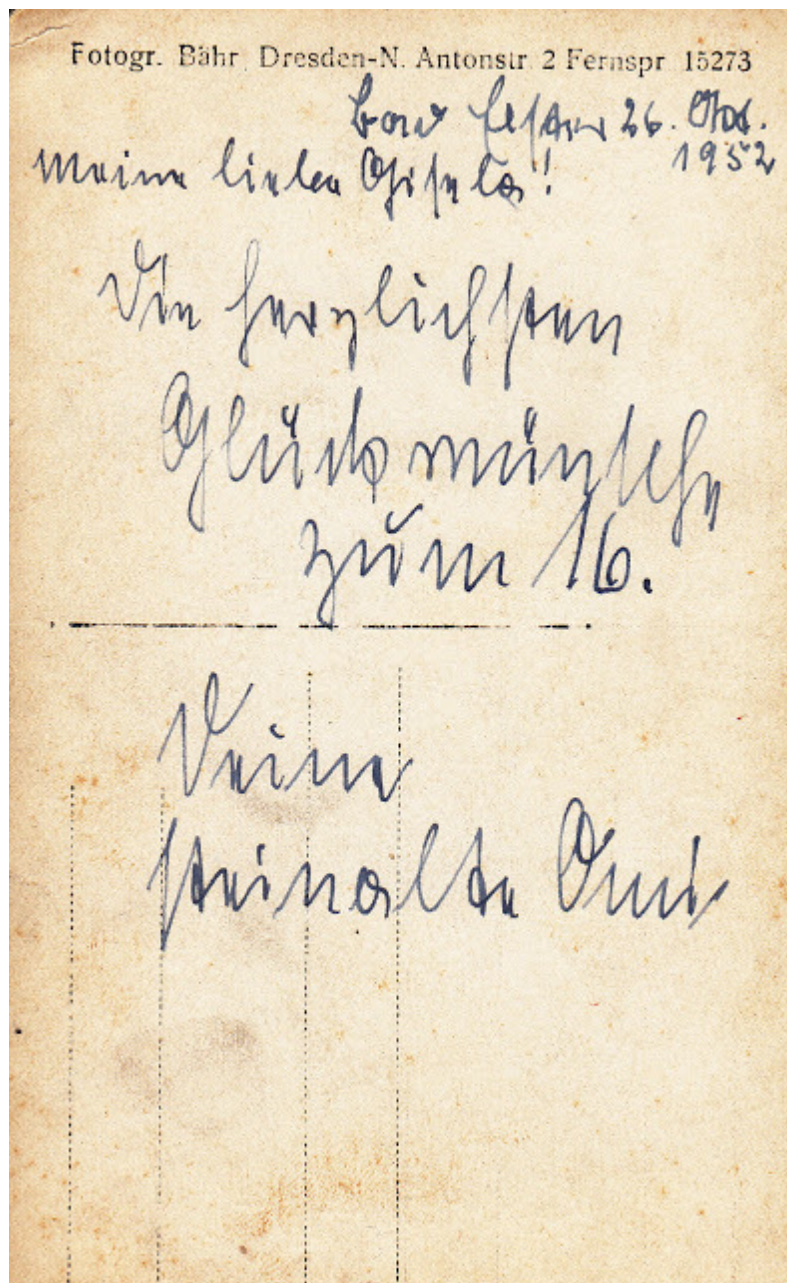 Fotogr. Bähr Dresden-N. Antonstr. 2 Fernspr. 15273
Bad Elster 26. Okt.
1952
Meine liebe Gisela!
Die herzlichsten
Glückwünsche
zum 16.
Deine
steinalte Omi